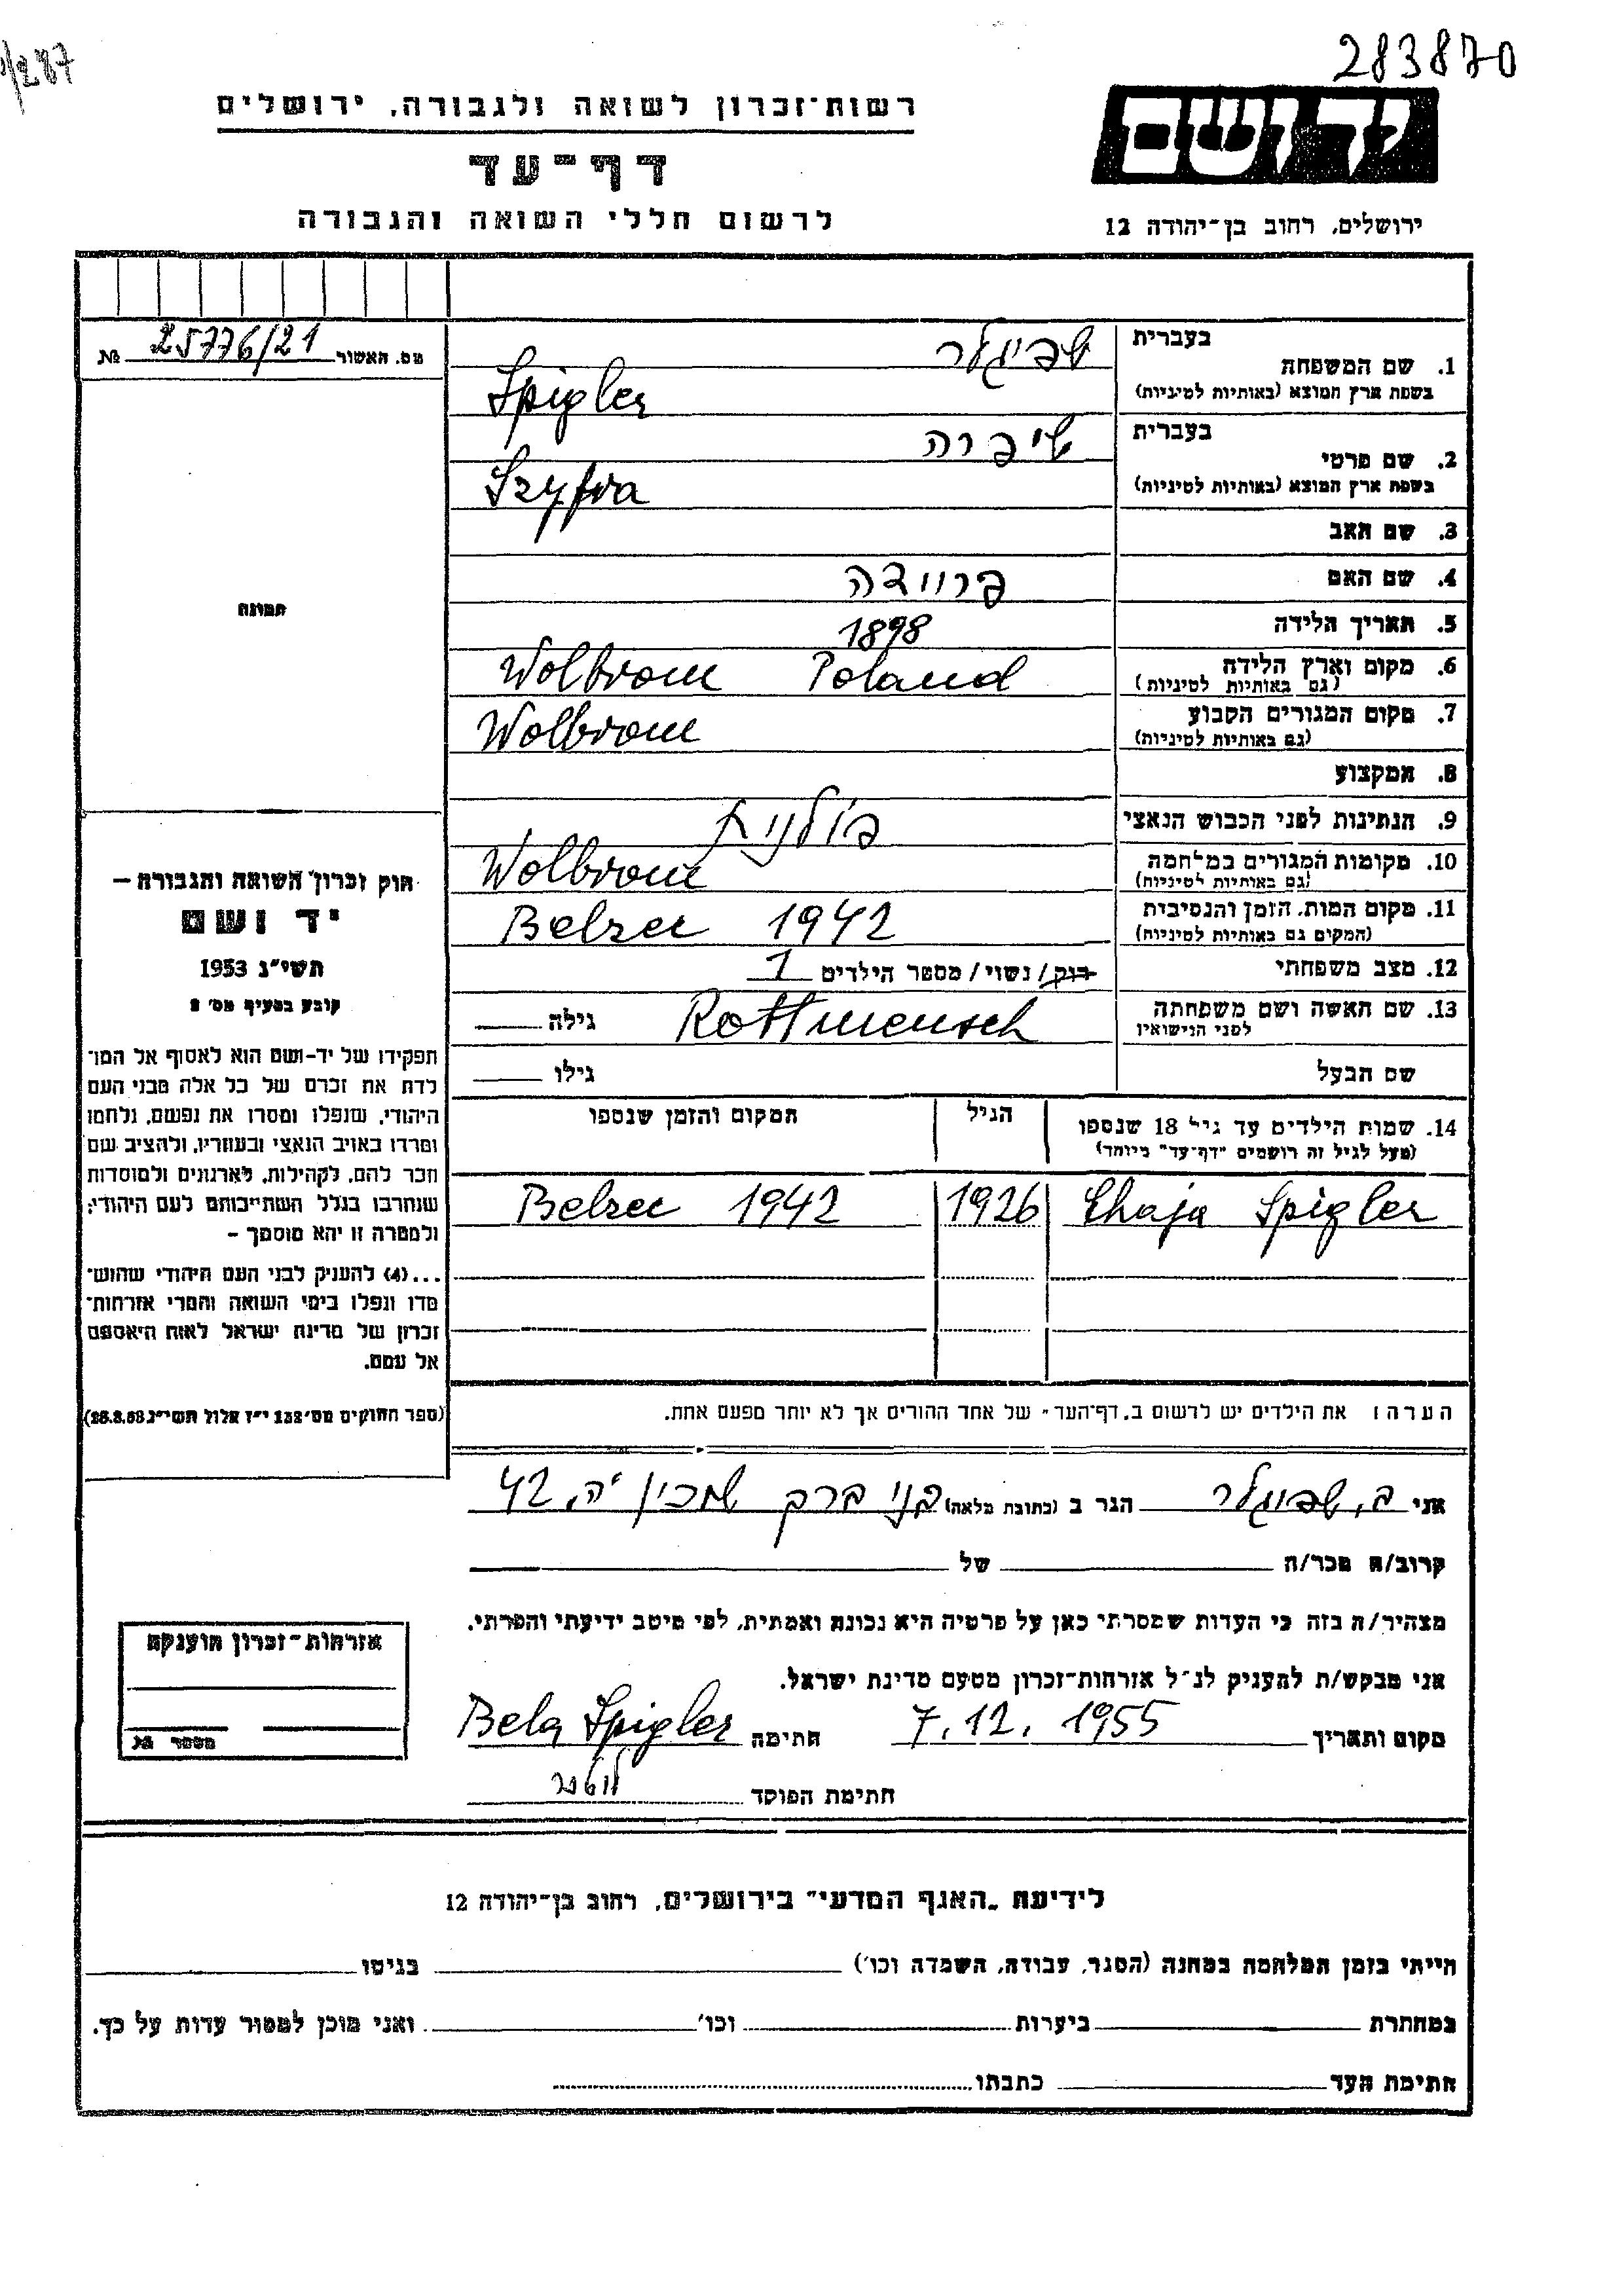 283870
/287
יד ושם
רשות־זכרון לשואה ולגבורה, ירושלים
דף־עד
לרשום חללי השואה והגבורה
ירושלים, רחוב בן־יהודה 12
מס. האשור 25776/21 №
בעברית שפיגלר
1. שם המשפחה
בשפת ארץ המוצא (באותיות לטיניות) Spigler
בעברית שיפרה
2. שם פרטי
בשפת ארץ המוצא (באותיות לטיניות) Szyfra
3. שם האב
4. שם האם פריידה
5. תאריך הלידה 1898
6. מקום וארץ הלידה Wolbrom Poland
(גם באותיות לטיניות)
7. מקום המגורים הקבוע Wolbrom
(גם באותיות לטיניות)
8. המקצוע
9. הנתינות לפני הכבוש הנאצי פולנית
10. מקומות המגורים במלחמה Wolbrom
(גם באותיות לטיניות)
11. מקום המות, הזמן והנסיבות Belzec 1942
(המקום גם באותיות לטיניות)
12. מצב משפחתי רוק/נשוי/מספר הילדים 1
13. שם האשה ושם משפחתה Rottmensch גילה
לפני הנישואין
שם הבעל גילו
14. שמות הילדים עד גיל 18 שנספו הגיל המקום והזמן שנספו
(מעל לגיל זה רושמים "דף־עד" מיוחד)
Chaja Spigler 1926 Belzec 1942
הערה: את הילדים יש לרשום ב„דף־העד" של אחד ההורים אך לא יותר מפעם אחת.
תמונה
חוק זכרון השואה והגבורה –
יד ושם
תשי"ג 1953
קובע בסעיף מס' 2
תפקידו של יד־ושם הוא לאסוף אל המו־
לדת את זכרם של כל אלה מבני העם
היהודי, שנפלו ומסרו את נפשם, נלחמו
ומרדו באויב הנאצי ובעוזריו, ולהציב שם
וזכר להם, לקהילות, לארגונים ולמוסדות
שנחרבו בגלל השתייכותם לעם היהודי;
ולמטרה זו יהא מוסמך –
...(4) להעניק לבני העם היהודי שהוש־
מדו ונפלו בימי השואה והמרי אזרחות־
זכרון של מדינת ישראל לאות היאספם
אל עמם.
(ספר החוקים מס' 132 י"ז אלול תשי"ג 28.8.53)
אני ב. שפיגלר הגר ב (כתובת מלאה) בני ברק שכון יה. 42
קרוב/ה מכר/ה של
מצהיר/ה בזה כי העדות שמסרתי כאן על פרטיה היא נכונה ואמתית, לפי מיטב ידיעתי והכרתי.
אני מבקש/ת להעניק לנ"ל אזרחות־זכרון מטעם מדינת ישראל.
מקום ותאריך 7.12.1955 חתימה Bela Spigler
חתימת הפוקד
אזרחות־זכרון הוענקה
מספר №
לידיעת „האגף המדעי" בירושלים, רחוב בן־יהודה 12
הייתי בזמן המלחמה במחנה (הסגר, עבודה, השמדה וכו') בגיטו
במחתרת ביערות וכו' ואני מוכן למסור עדות על כך.
חתימת העד כתבתו